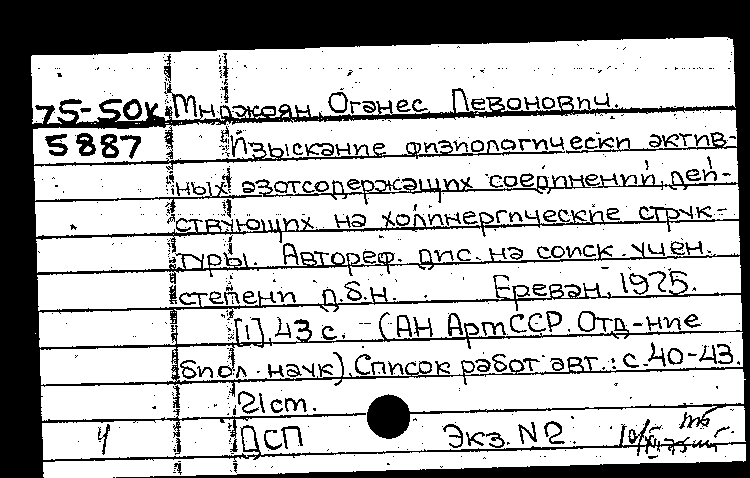 75-50к Мнджоян, Оганес Левонович.
5887 Изыскание физиологически актив-
ных азотсодержащих соединений, дей-
ствующих на холинергические струк-
туры. Автореф. дис. на соиск. учен.
степени д.б.н. Ереван, 1975.
[1], 43 с. - (АН АрмССР. Отд-ние
биол. наук). Список работ авт.: с. 40-43.
21 ст.
4 ДСП Экз. N 2